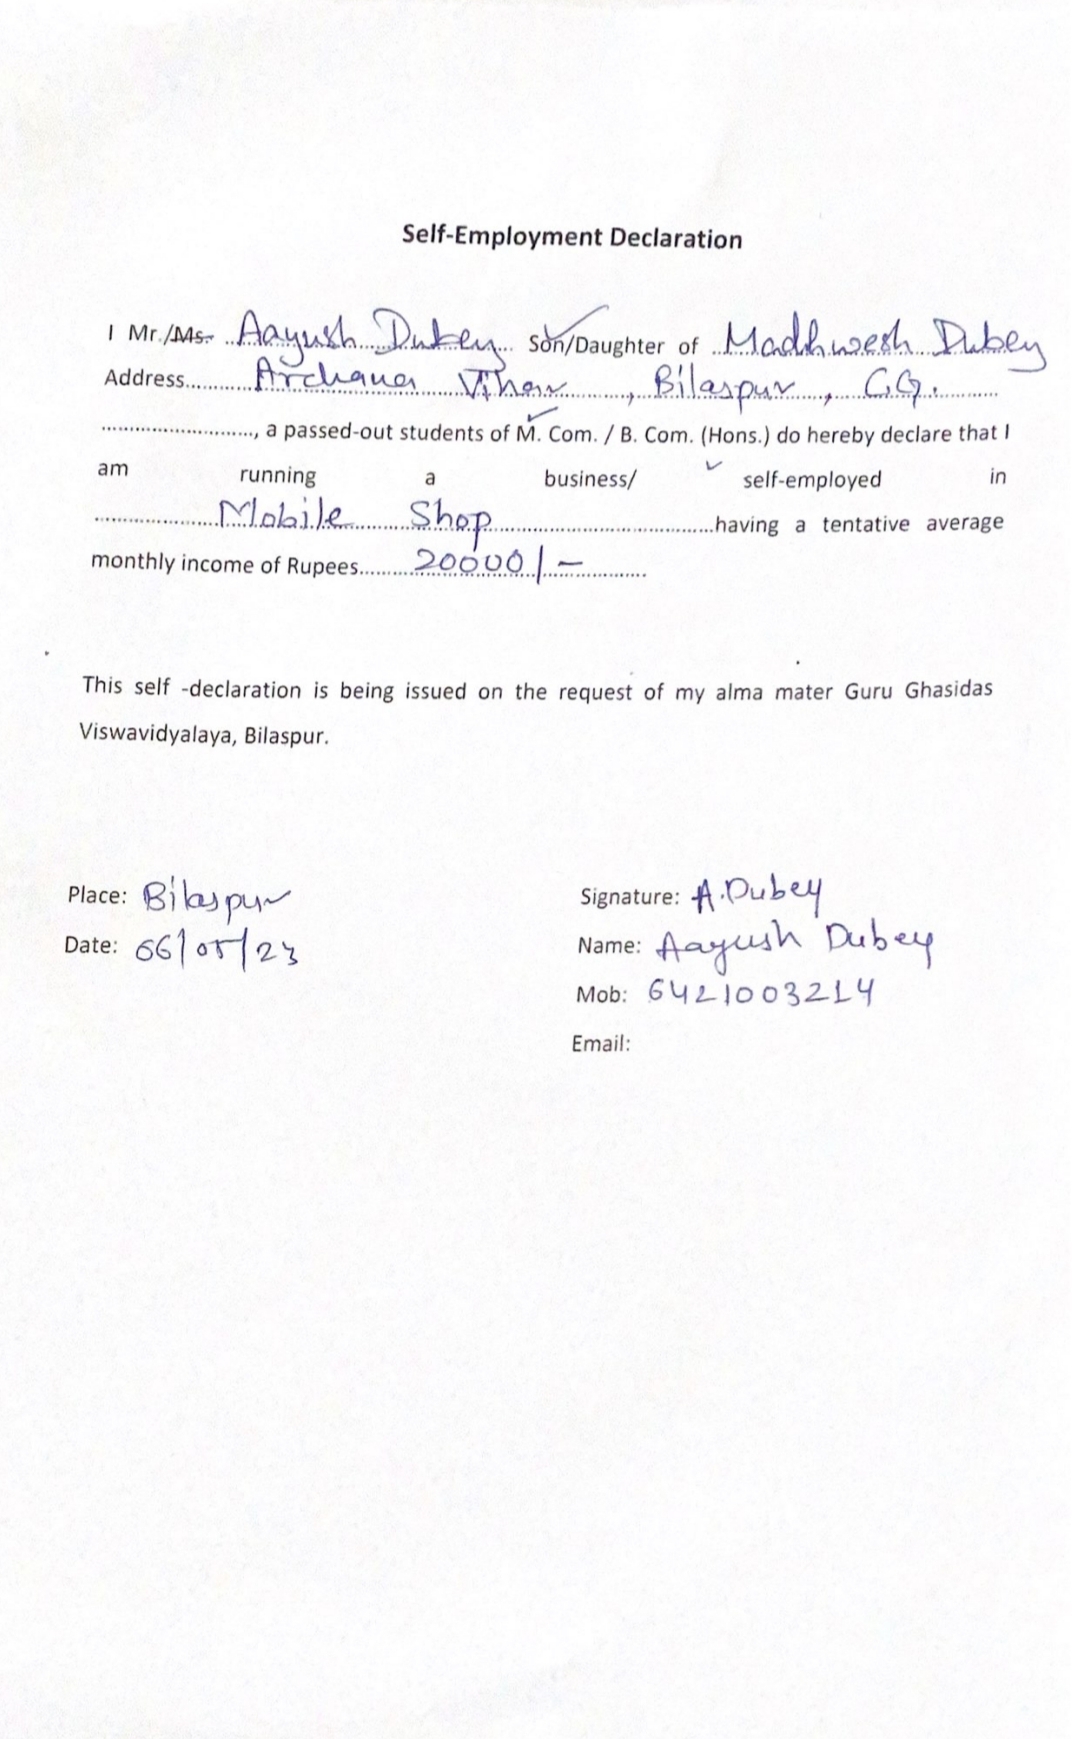 Self-Employment Declaration
I Mr./Ms. Aayush Dubey Son/Daughter of Madhwesh Dubey
Address............ Archana Vihar, Bilaspur, C.G.
............................, a passed-out students of M. Com. / B. Com. (Hons.) do hereby declare that I
am running a business/ self-employed in
......................Mobile Shop........................................having a tentative average
monthly income of Rupees.......... 20000/-
This self -declaration is being issued on the request of my alma mater Guru Ghasidas
Viswavidyalaya, Bilaspur.
Place: Bilaspur
Date: 06/05/23
Signature: A.Dubey
Name: Aayush Dubey
Mob: 6421003214
Email: